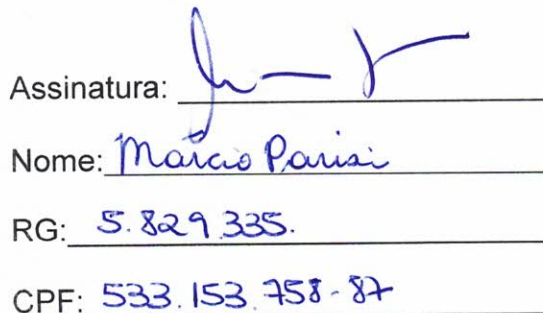 Assinatura:
Nome: Márcio Parisi
RG: 5.829.335.
CPF: 533.153.758-87